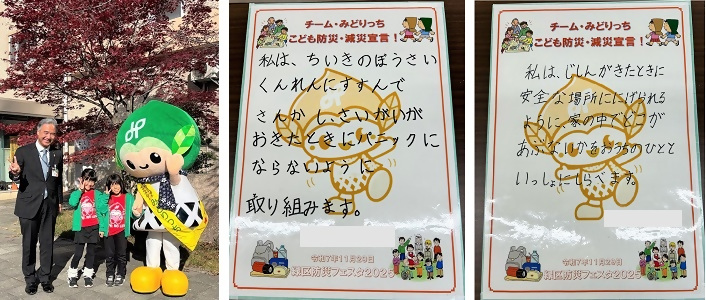 チーム・みどりっち
こども防災・減災宣言!
私は、ちいきのぼうさい
くんれんにすすんで
さんかし、さいがいが
おきたときにパニックに
ならないように
取り組みます。
令和7年11月29日
緑区防災フェスタ2025
チーム・みどりっち
こども防災・減災宣言!
私は、じしんがきたときに
安全な場所ににげられる
ように、家の中でどこが
あぶないかをおうちのひとと
いっしょにしらべます。
令和7年11月29日
緑区防災フェスタ2025